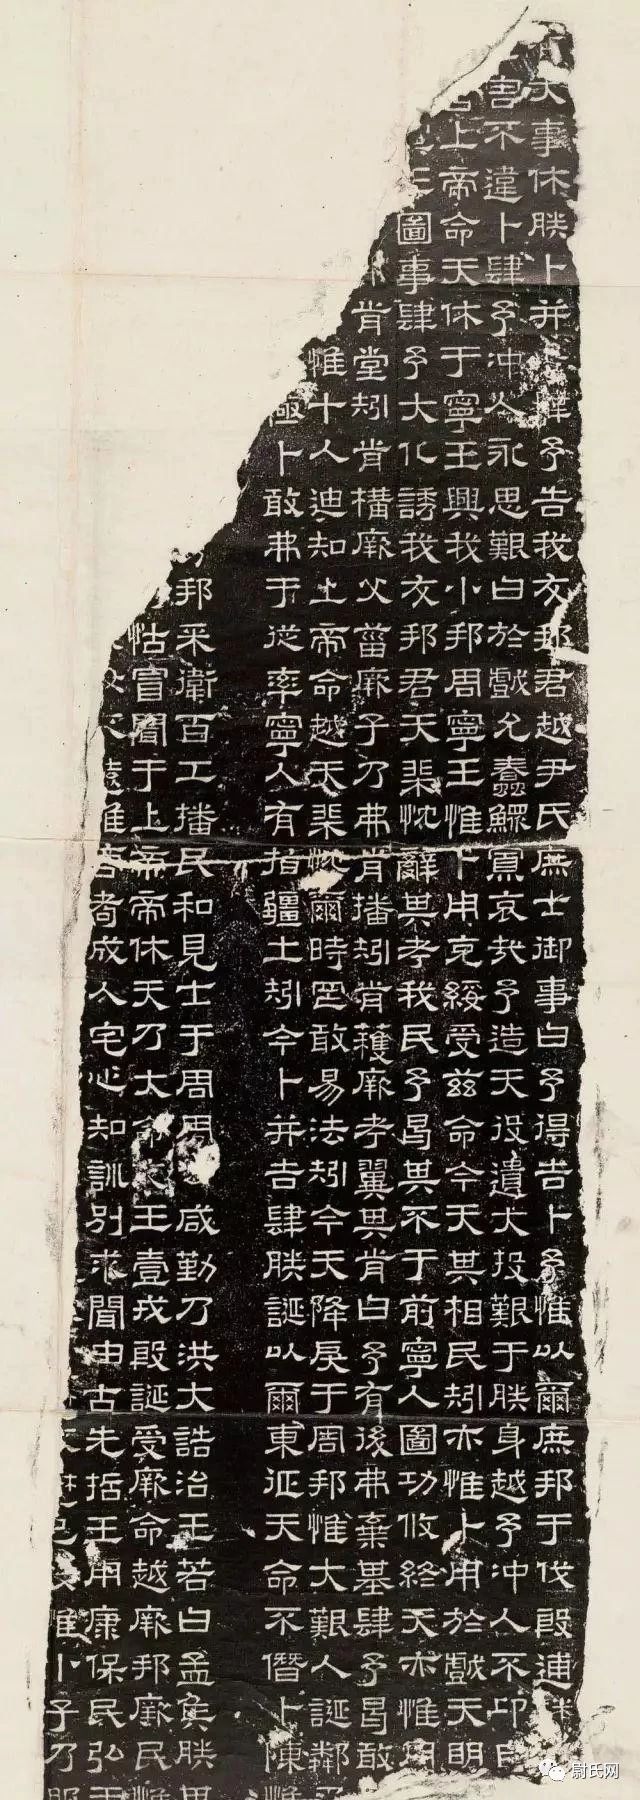 大事休朕卜并予告我友邦君越尹氏庶士御事曰予得吉卜予惟以爾庶邦于伐殷逋
害不違卜肆予冲人永思艱曰於戲允蠢鰥寡哀哉予造天役遺大投艱于朕身越予冲人不卬自
上帝命天休于寧王興我小邦周寧王惟卜用克綏受茲命今天其相民矧亦惟卜用於戲天明
圖事肆予大化誘我友邦君天棐忱辭其考我民予曷其不于前寧人圖功攸終天亦惟用
肯堂矧肯構厥父菑厥子乃弗肯播矧肯穫厥考翼其肯曰予有後弗棄基肆予曷敢
惟十人迪知上帝命越天棐忱爾時罔敢易法矧今天降戾于周邦惟大艱人誕鄰
極卜敢弗于從率寧人有指疆土矧今卜并吉肆朕誕以爾東征天命不僭卜陳
邦采衛百工播民和見士于周周咸勤乃洪大誥治王若曰孟侯朕
怙冒聞于上帝帝休天乃大命王壹戎殷誕受厥命越厥邦厥民
遠惟商耇成人宅心知訓別求聞由古先哲王用康保民弘于
惟小子乃服
尉氏网